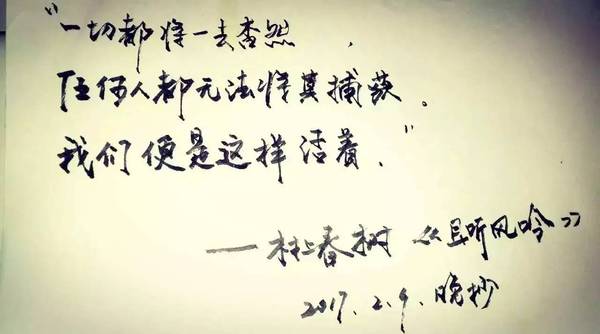 “一切都将一去杳然，
任何人都无法将其捕获。
我们便是这样活着。”
——村上春树《且听风吟》
2017.2.9.晚抄